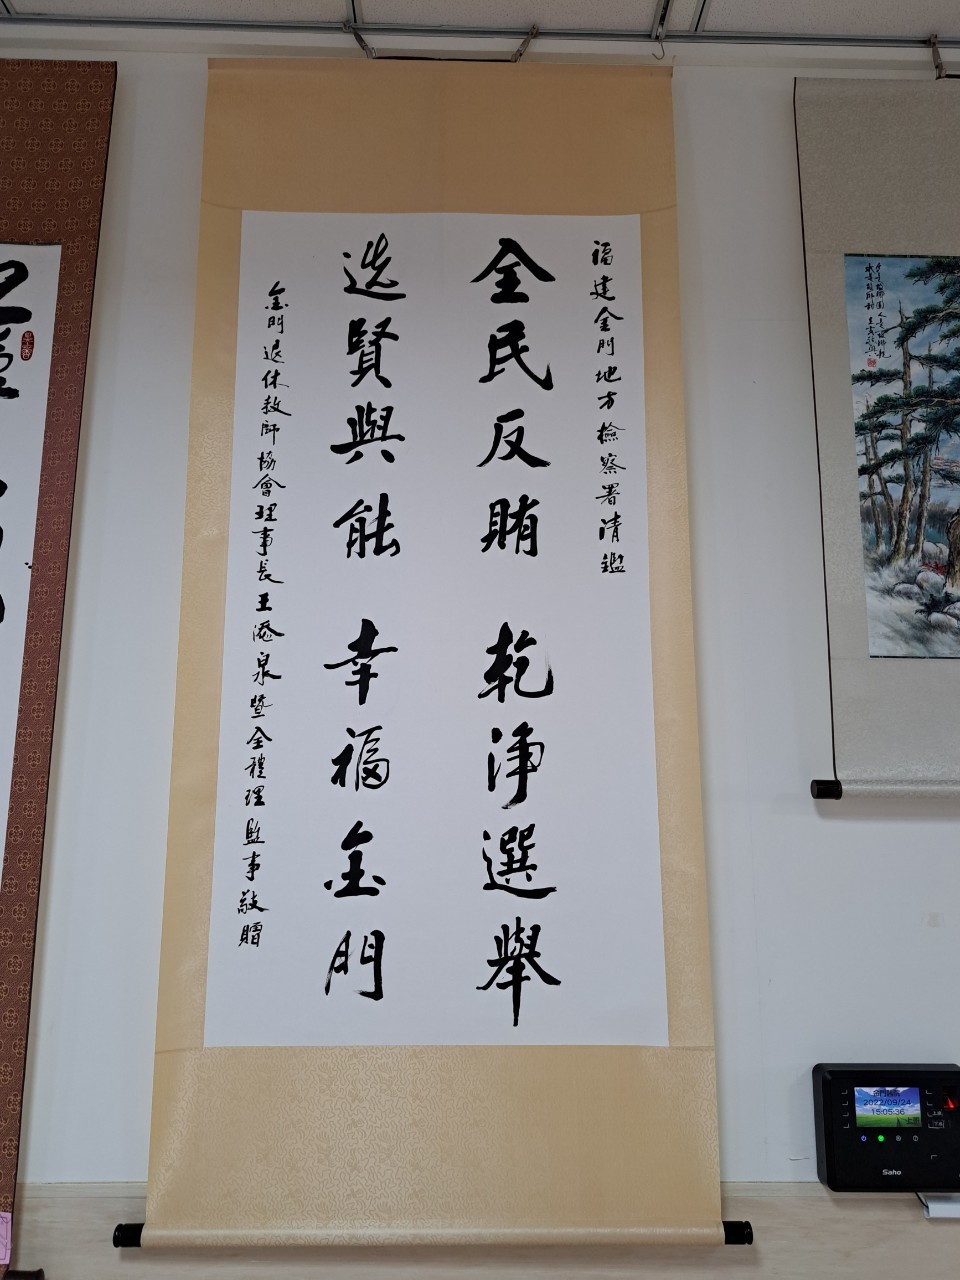 福建金門地方檢察署清鑑
全民反賄 乾淨選舉
选賢與能 幸福金門
金門退休教師協會理事長王添泉暨全體理監事敬贈
2022/09/24
15:05:36
上班
Saho